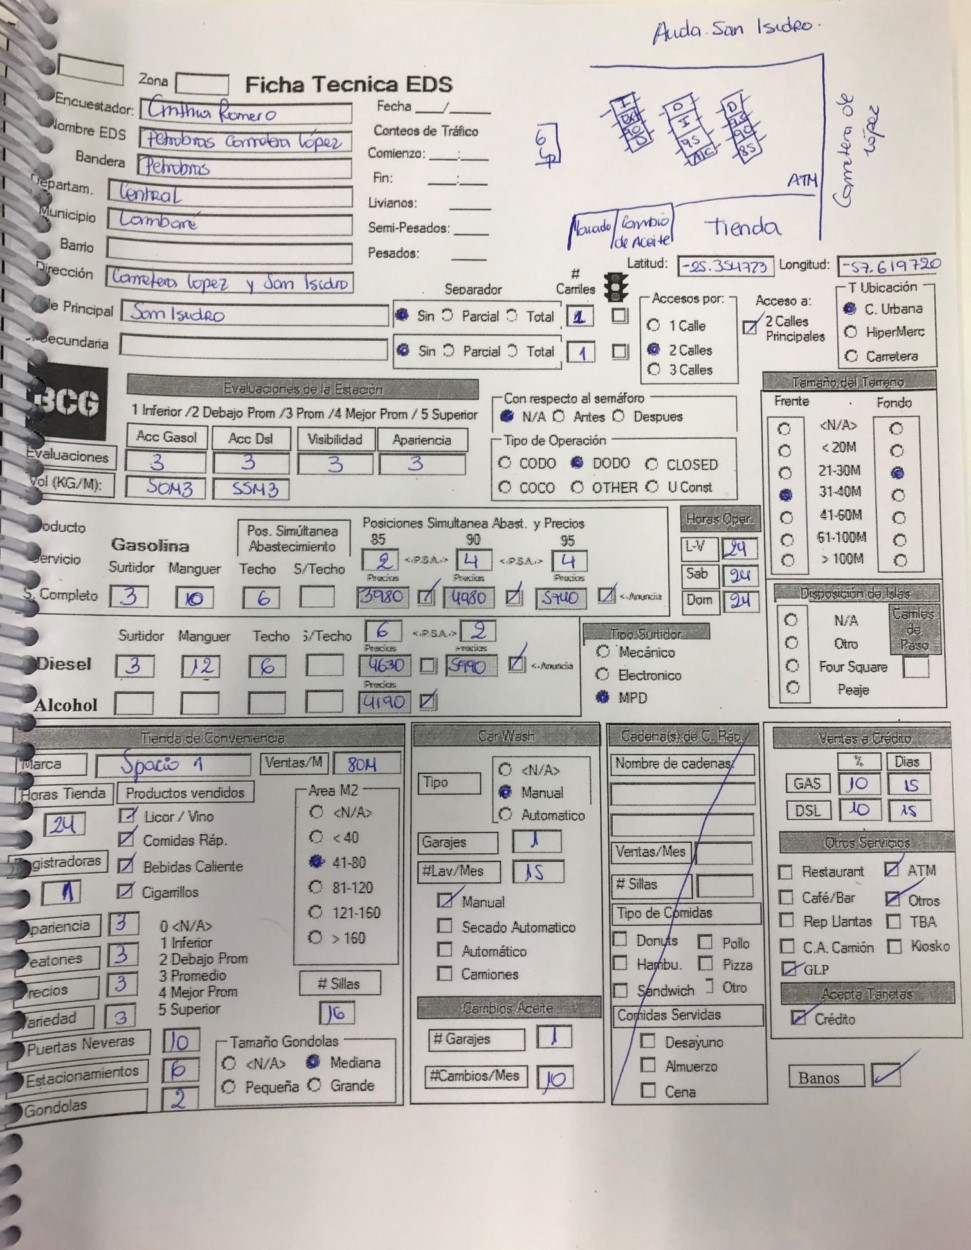 Avda. San Isidro.
Zona
Ficha Tecnica EDS
Encuestador: Cinthia Romero
Nombre EDS Petrobras Carretera López
Bandera Petrobras
Departam. Central
Municipio Lambaré
Barrio
Dirección Carretera Lopez y San Isidro
Fecha ___/___
Conteos de Tráfico
Comienzo: ___:___
Fin: ___:___
Livianos: ____
Semi-Pesados: ____
Pesados: ____
6
D
I
95
A/C
D
95
90
85
ATM
Carretera de López
Lavado
Cambio de Aceite
Tienda
Latitud: -25.354773 Longitud: -57.619720
Separador
# Carriles
Principal San Isidro
Sin Parcial Total 1
Secundaria
Sin Parcial Total 1
Accesos por:
1 Calle
2 Calles
3 Calles
Acceso a:
2 Calles Principales
T Ubicación
C. Urbana
HiperMerc
Carretera
BCG
Evaluaciones de la Estación
1 Inferior /2 Debajo Prom /3 Prom /4 Mejor Prom / 5 Superior
Acc Gasol Acc Dsl Visibilidad Apariencia
Evaluaciones 3 3 3 3
Vol (KG/M): 50M3 55M3
Con respecto al semáforo
N/A Antes Despues
Tipo de Operación
CODO DODO CLOSED
COCO OTHER U Const
Tamaño del Terreno
Frente Fondo
<N/A>
< 20M
21-30M
31-40M
41-60M
61-100M
> 100M
Producto
Servicio
Gasolina
Pos. Simúltanea Abastecimiento
Posiciones Simultanea Abast. y Precios
85 90 95
2 <-P.S.A.-> 4 <-P.S.A.-> 4
Surtidor Manguer Techo S/Techo
Precios Precios Precios
S. Completo 3 10 6 3980 4980 5940 <-Anuncia
Horas Oper.
L-V 24
Sab 24
Dom 24
Surtidor Manguer Techo S/Techo
6 <-P.S.A.-> 2
Precios Precios
Diesel 3 12 6 4630 5990 <-Anuncia
Precios
Alcohol 4190
Tipo Surtidor
Mecánico
Electronico
MPD
Disposición de Islas
N/A
Otro
Four Square
Peaje
Carriles de Paso
Tienda de Conveniencia
Marca Spacio 1 Ventas/M 80M
Horas Tienda 24
Productos vendidos
Licor / Vino
Comidas Ráp.
Bebidas Caliente
Cigarrillos
Registradoras 1
Area M2
<N/A>
< 40
41-80
81-120
121-160
> 160
Apariencia 3
Peatones 3
Precios 3
Variedad 3
0 <N/A>
1 Inferior
2 Debajo Prom
3 Promedio
4 Mejor Prom
5 Superior
# Sillas
16
Puertas Neveras 10
Estacionamientos 6
Gondolas 2
Tamaño Gondolas
<N/A> Mediana
Pequeña Grande
Car Wash
Tipo
<N/A>
Manual
Automatico
Garajes 1
#Lav/Mes 15
Manual
Secado Automatico
Automático
Camiones
Cambios Aceite
# Garajes 1
#Cambios/Mes 10
Cadena(s) de C. Ráp.
Nombre de cadenas
Ventas/Mes
# Sillas
Tipo de Comidas
Donuts Pollo
Hambu. Pizza
Sandwich Otro
Comidas Servidas
Desayuno
Almuerzo
Cena
Ventas a Crédito
% Dias
GAS 10 15
DSL 10 15
Otros Servicios
Restaurant ATM
Café/Bar Otros
Rep Llantas TBA
C.A. Camión Kiosko
GLP
Acepta Tarjetas
Crédito
Banos